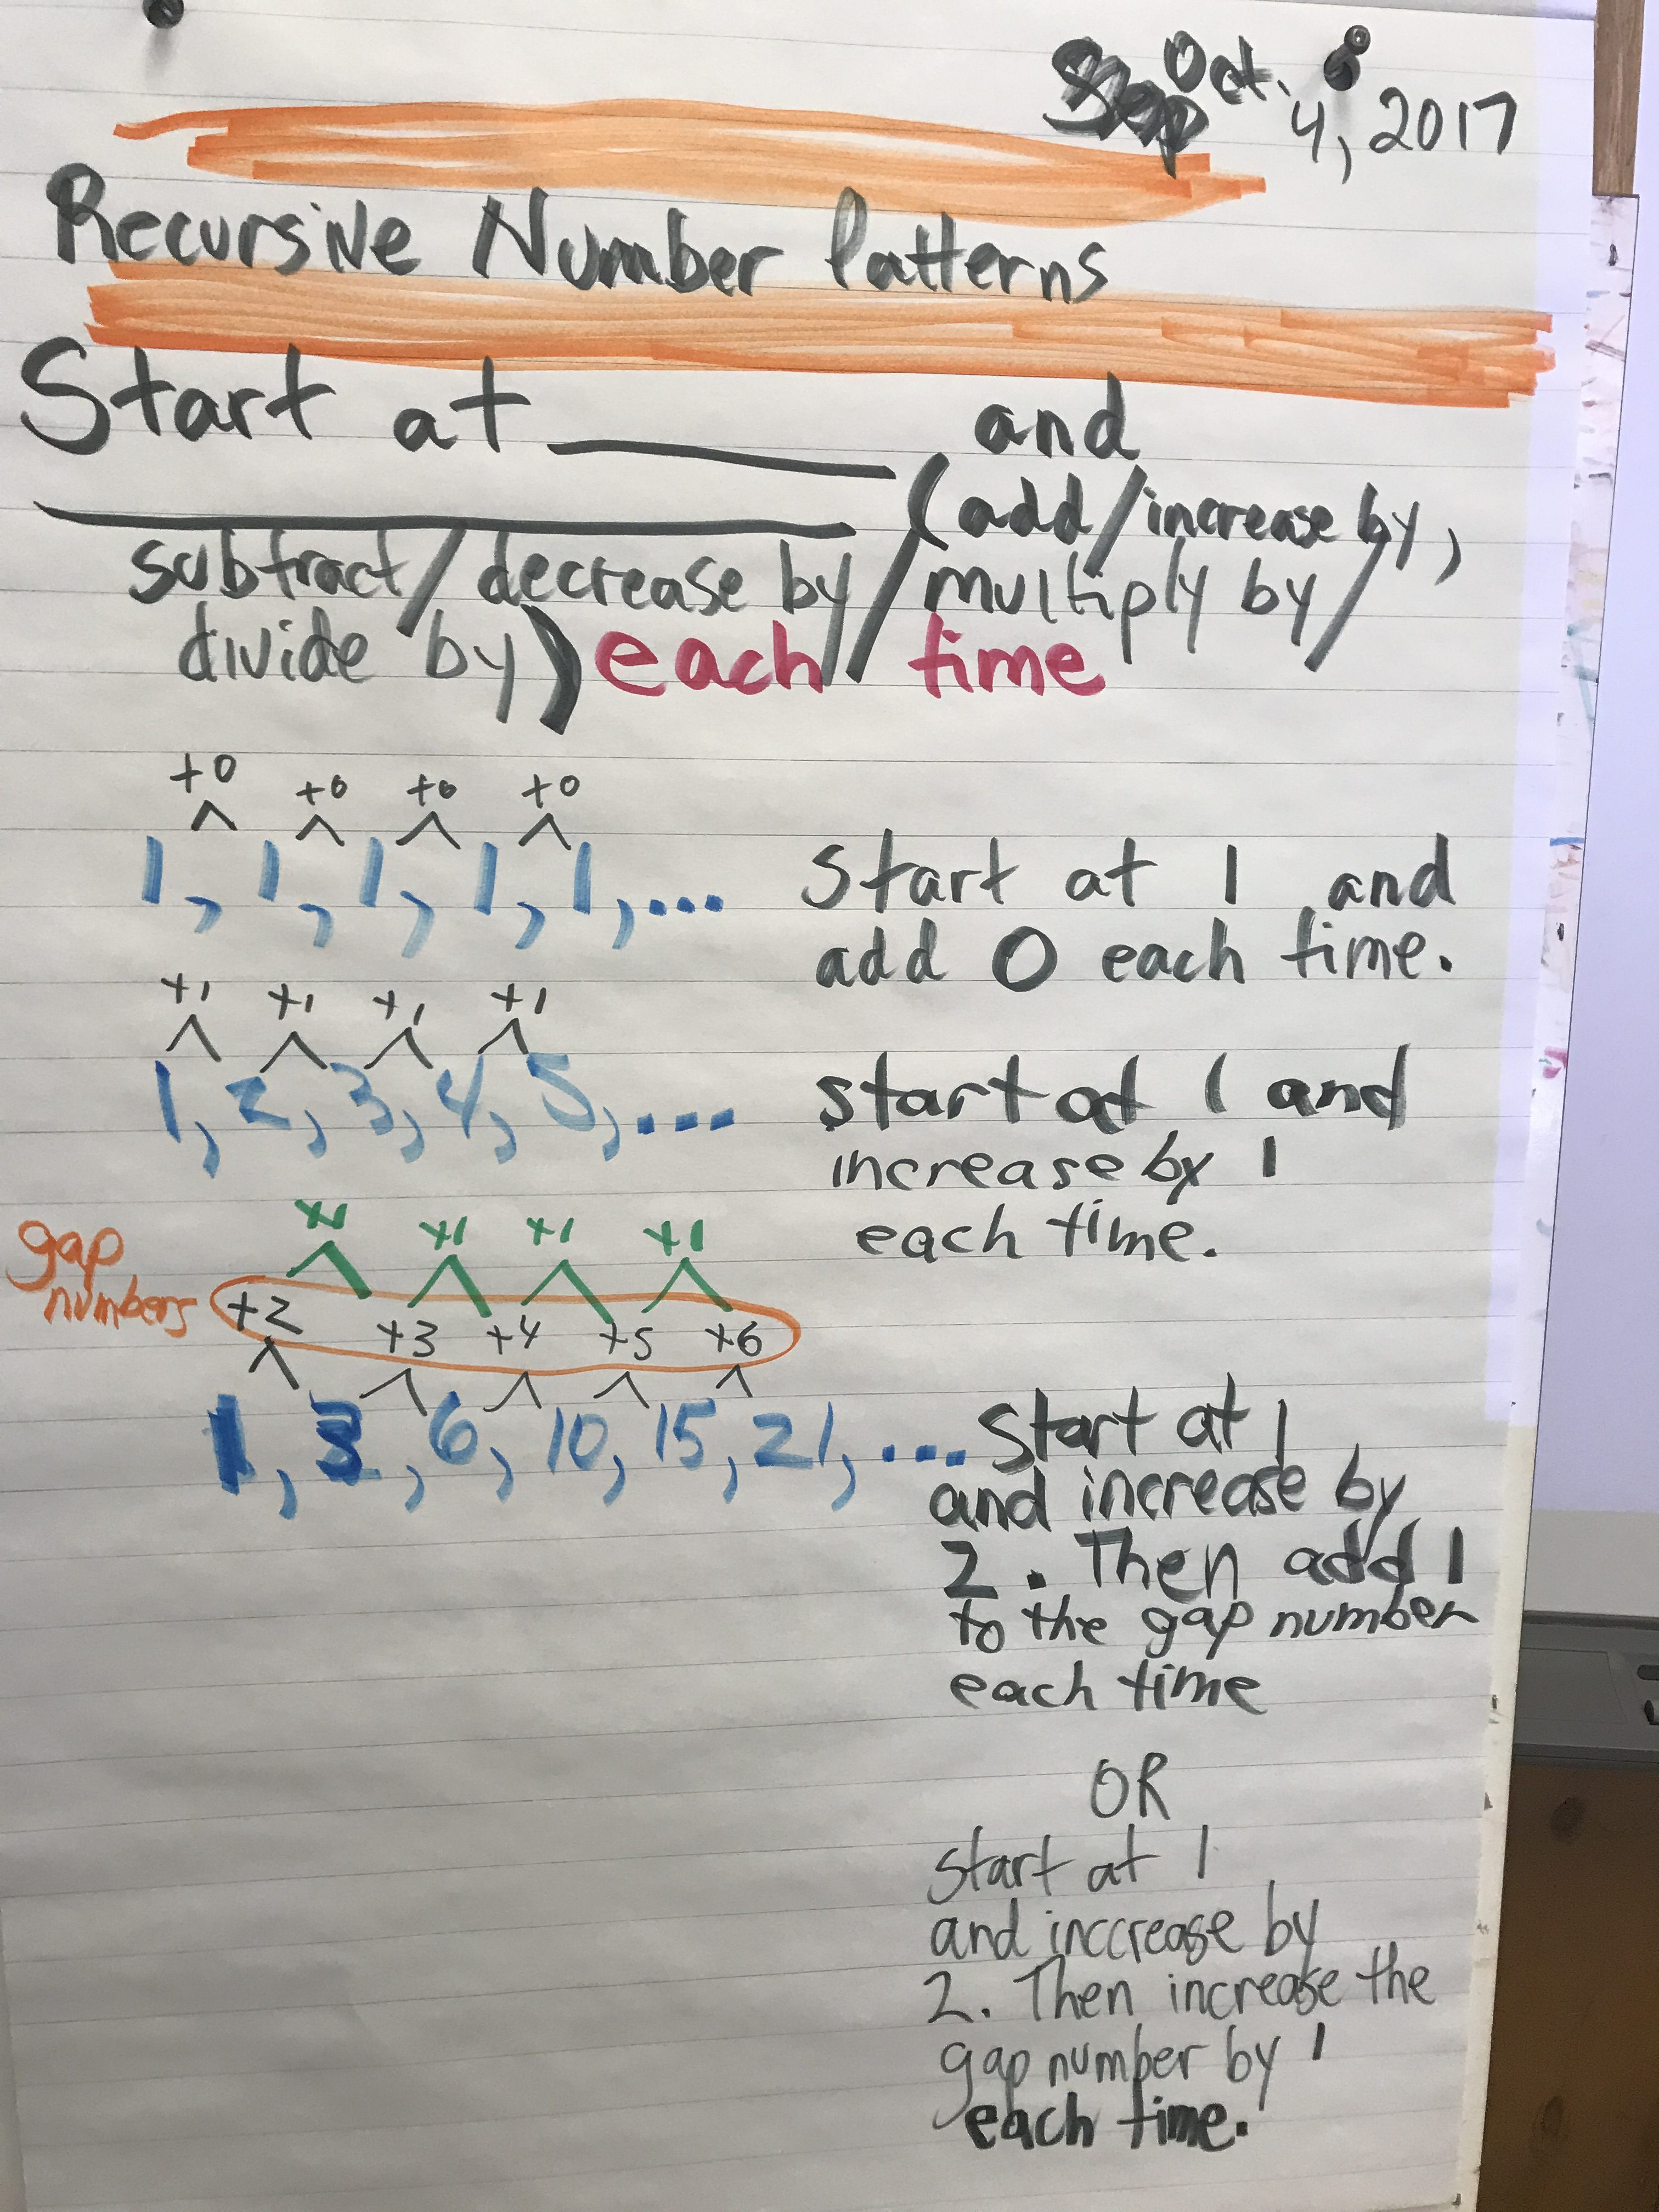 Oct. 4, 2017
Recursive Number Patterns
Start at ________ and
________ (add/increase by,
subtract/decrease by/multiply by/
divide by) each time
+0 +0 +0 +0
1, 1, 1, 1, 1, ...
Start at 1 and
add 0 each time.
+1 +1 +1 +1
1, 2, 3, 4, 5, ...
start at 1 and
increase by 1
each time.
gap
numbers
+1 +1 +1 +1
+2 +3 +4 +5 +6
1, 3, 6, 10, 15, 21, ...
Start at 1
and increase by
2. Then add 1
to the gap number
each time
OR
Start at 1
and inccrease by
2. Then increase the
gap number by 1
each time.